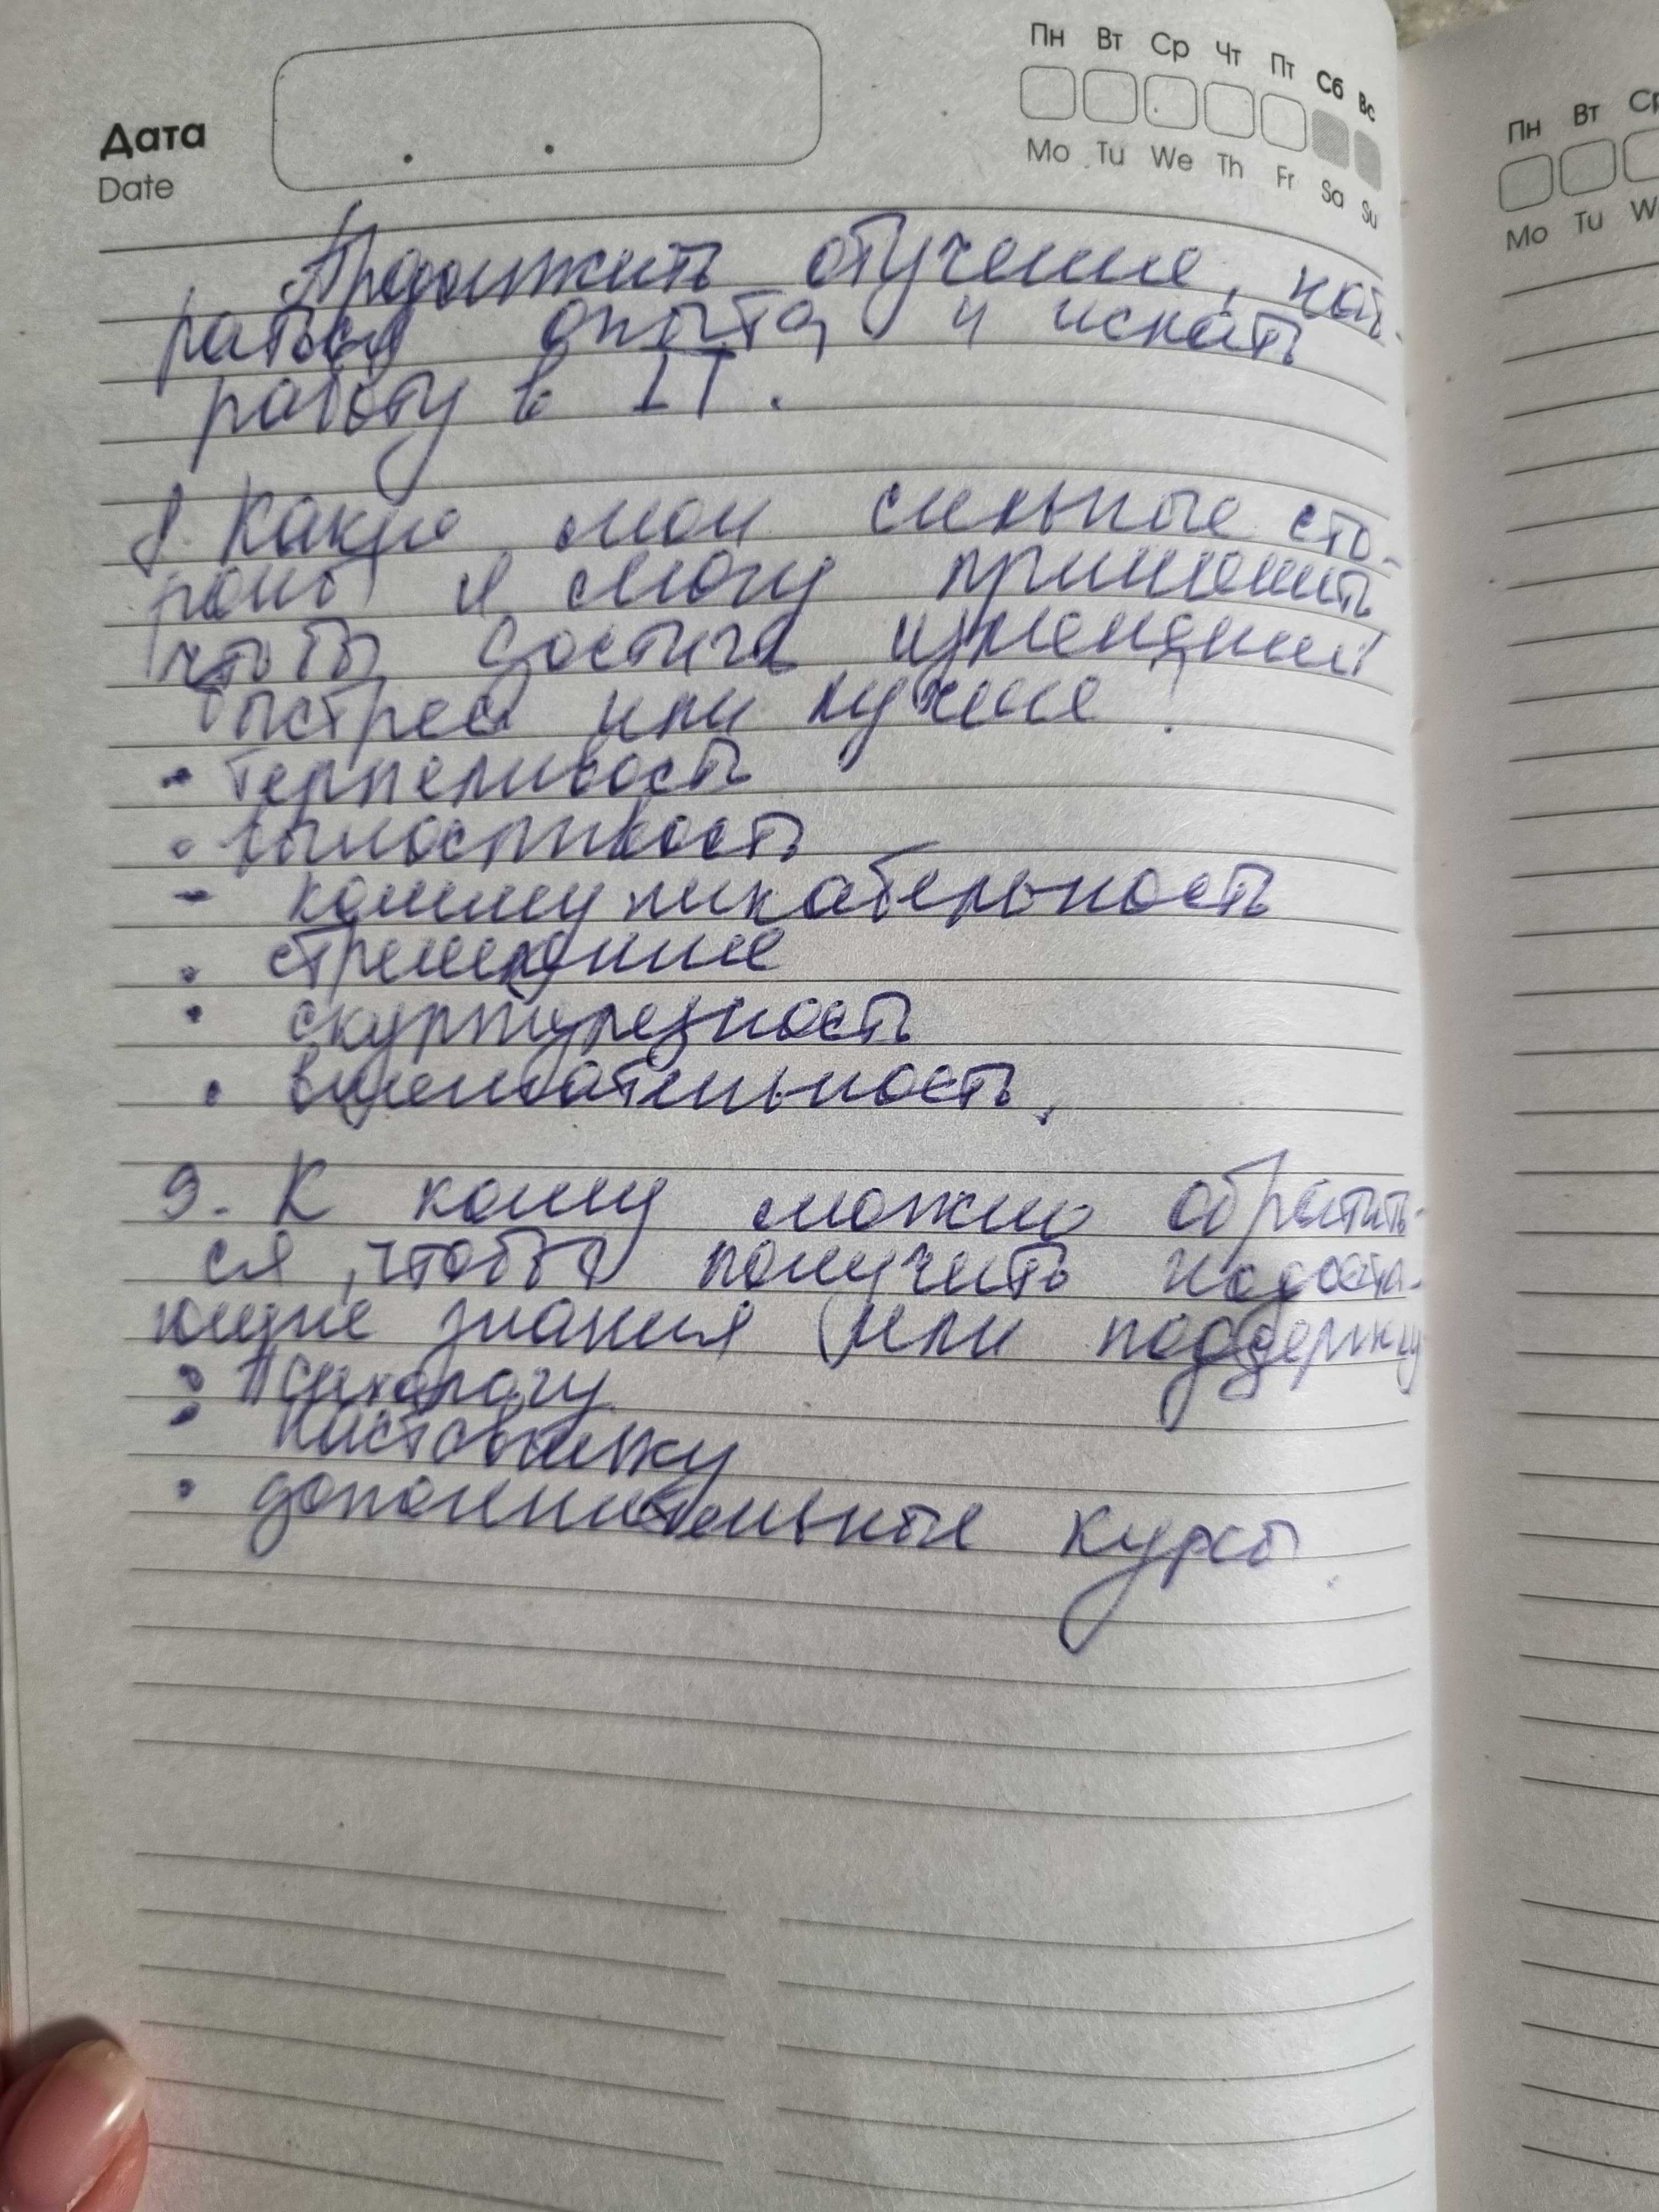 Пн Вт Ср Чт Пт Сб Вс
Дата
Date
Mo Tu We Th Fr Sa Su
Пн Вт Ср
Mo Tu We
Продолжить обучение, наб-
раться опыта и искать
работу в IT.
8. Какие мои сильные сто-
роны я смогу применить
чтобы достига изменений
быстрее или лучше?
- Терпеливость
• выносливость
- коммуникабельность
• стремление
• скурпулезность
• внимательность.
9. К кому можно обратить-
ся, чтобы получить недоста-
ющие знания (или поддержку
• Психологу
• наставнику
• дополнительные курсы.